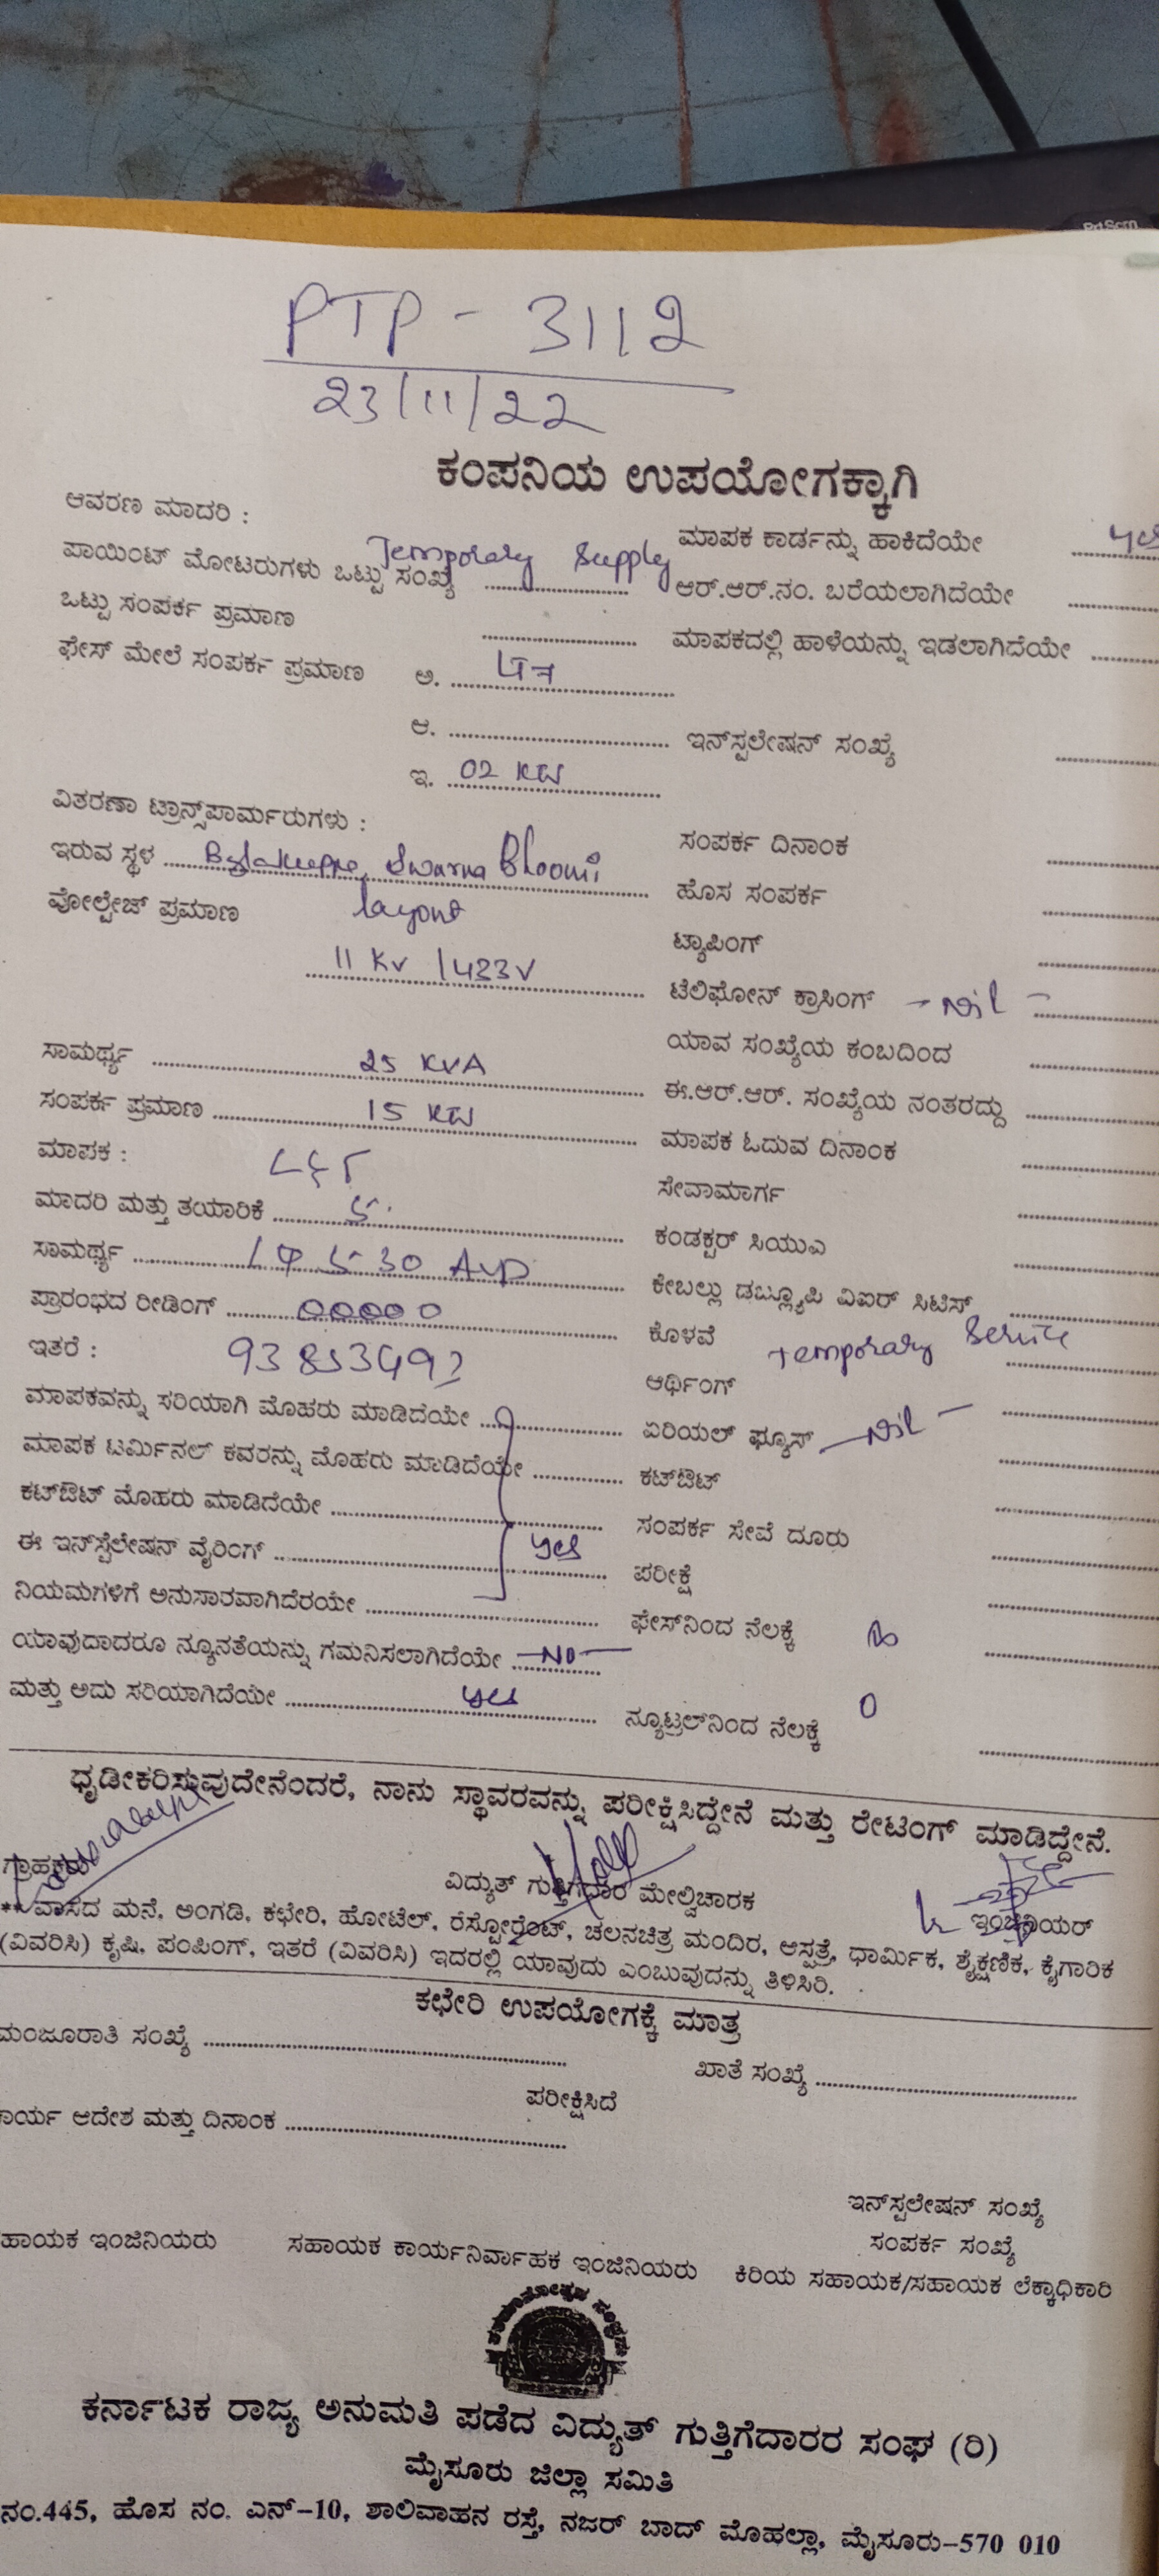 PrtScm
PTP - 3112
23/11/22
ಕಂಪನಿಯ ಉಪಯೋಗಕ್ಕಾಗಿ
ಆವರಣ ಮಾದರಿ :
Temporary Supply
ಪಾಯಿಂಟ್ ಮೋಟರುಗಳು ಒಟ್ಟು ಸಂಖ್ಯೆ ....................
ಒಟ್ಟು ಸಂಪರ್ಕ ಪ್ರಮಾಣ ....................
ಫೇಸ್ ಮೇಲೆ ಸಂಪರ್ಕ ಪ್ರಮಾಣ ಅ. ....................
ಆ. ....................
ಇ. 02 KW
ವಿತರಣಾ ಟ್ರಾನ್ಸ್‌ಪಾರ್ಮರುಗಳು :
ಇರುವ ಸ್ಥಳ Bylakuppe, Swarna Bhoomi
layout
ವೋಲ್ಟೇಜ್ ಪ್ರಮಾಣ
11 KV / 433V
ಸಾಮರ್ಥ್ಯ 25 KVA
ಸಂಪರ್ಕ ಪ್ರಮಾಣ 15 KW
ಮಾಪಕ :
ಮಾದರಿ ಮತ್ತು ತಯಾರಿಕೆ ....................
ಸಾಮರ್ಥ್ಯ 5-30 Amp
ಪ್ರಾರಂಭದ ರೀಡಿಂಗ್ 00000
ಇತರೆ :
ಮಾಪಕವನ್ನು ಸರಿಯಾಗಿ ಮೊಹರು ಮಾಡಿದೆಯೇ ....................
ಮಾಪಕ ಟರ್ಮಿನಲ್ ಕವರನ್ನು ಮೊಹರು ಮಾಡಿದೆಯೇ ....................
ಕಟ್‌ಔಟ್ ಮೊಹರು ಮಾಡಿದೆಯೇ ....................
ಈ ಇನ್‌ಸ್ಟೆಲೇಷನ್ ವೈರಿಂಗ್ .................... yes
ನಿಯಮಗಳಿಗೆ ಅನುಸಾರವಾಗಿದೆರಯೇ ....................
ಯಾವುದಾದರೂ ನ್ಯೂನತೆಯನ್ನು ಗಮನಿಸಲಾಗಿದೆಯೇ - No -
ಮತ್ತು ಅದು ಸರಿಯಾಗಿದೆಯೇ yes
ಮಾಪಕ ಕಾರ್ಡನ್ನು ಹಾಕಿದೆಯೇ yes
ಆರ್.ಆರ್.ನಂ. ಬರೆಯಲಾಗಿದೆಯೇ ....................
ಮಾಪಕದಲ್ಲಿ ಹಾಳೆಯನ್ನು ಇಡಲಾಗಿದೆಯೇ ....................
ಇನ್‌ಸ್ಟಲೇಷನ್ ಸಂಖ್ಯೆ ....................
ಸಂಪರ್ಕ ದಿನಾಂಕ ....................
ಹೊಸ ಸಂಪರ್ಕ ....................
ಟ್ಯಾಪಿಂಗ್ ....................
ಟೆಲಿಫೋನ್ ಕ್ರಾಸಿಂಗ್ - Nil -
ಯಾವ ಸಂಖ್ಯೆಯ ಕಂಬದಿಂದ ....................
ಈ.ಆರ್.ಆರ್. ಸಂಖ್ಯೆಯ ನಂತರದ್ದು ....................
ಮಾಪಕ ಓದುವ ದಿನಾಂಕ ....................
ಸೇವಾಮಾರ್ಗ ....................
ಕಂಡಕ್ಟರ್ ಸಿಯುಎ ....................
ಕೇಬಲ್ಲು ಡಬ್ಲ್ಯೂಪಿ ವಿಐರ್ ಸಿಟಿಸ್ ....................
ಕೊಳವೆ Temporary Service
ಆರ್ಥಿಂಗ್ ....................
ಏರಿಯಲ್ ಫ್ಯೂಸ್ - Nil -
ಕಟ್‌ಔಟ್ ....................
ಸಂಪರ್ಕ ಸೇವೆ ದೂರು ....................
ಪರೀಕ್ಷೆ ....................
ಫೇಸ್‌ನಿಂದ ನೆಲಕ್ಕೆ ....................
ನ್ಯೂಟ್ರಲ್‌ನಿಂದ ನೆಲಕ್ಕೆ 0
ಧೃಡೀಕರಿಸುವುದೇನೆಂದರೆ, ನಾನು ಸ್ಥಾವರವನ್ನು ಪರೀಕ್ಷಿಸಿದ್ದೇನೆ ಮತ್ತು ರೇಟಿಂಗ್ ಮಾಡಿದ್ದೇನೆ.
ಗ್ರಾಹಕರು ವಿದ್ಯುತ್ ಗುತ್ತಿಗೆದಾರ ಮೇಲ್ವಿಚಾರಕ ಇಂಜಿನಿಯರ್
** ವಾಸದ ಮನೆ, ಅಂಗಡಿ, ಕಛೇರಿ, ಹೋಟೆಲ್, ರೆಸ್ಟೋರೆಂಟ್, ಚಲನಚಿತ್ರ ಮಂದಿರ, ಆಸ್ಪತ್ರೆ, ಧಾರ್ಮಿಕ, ಶೈಕ್ಷಣಿಕ, ಕೈಗಾರಿಕ
(ವಿವರಿಸಿ) ಕೃಷಿ, ಪಂಪಿಂಗ್, ಇತರೆ (ವಿವರಿಸಿ) ಇದರಲ್ಲಿ ಯಾವುದು ಎಂಬುವುದನ್ನು ತಿಳಿಸಿರಿ.
ಕಛೇರಿ ಉಪಯೋಗಕ್ಕೆ ಮಾತ್ರ
ಮಂಜೂರಾತಿ ಸಂಖ್ಯೆ .................... ಖಾತೆ ಸಂಖ್ಯೆ ....................
ಪರೀಕ್ಷಿಸಿದೆ
ಾರ್ಯ ಆದೇಶ ಮತ್ತು ದಿನಾಂಕ ....................
ಇನ್‌ಸ್ಟಲೇಷನ್ ಸಂಖ್ಯೆ
ಸಂಪರ್ಕ ಸಂಖ್ಯೆ
ಹಾಯಕ ಇಂಜಿನಿಯರು ಸಹಾಯಕ ಕಾರ್ಯನಿರ್ವಾಹಕ ಇಂಜಿನಿಯರು ಕಿರಿಯ ಸಹಾಯಕ/ಸಹಾಯಕ ಲೆಕ್ಕಾಧಿಕಾರಿ
ಕರ್ನಾಟಕ ರಾಜ್ಯ ಅನುಮತಿ ಪಡೆದ ವಿದ್ಯುತ್ ಗುತ್ತಿಗೆದಾರರ ಸಂಘ (ರಿ)
ಮೈಸೂರು ಜಿಲ್ಲಾ ಸಮಿತಿ
ನಂ.445, ಹೊಸ ನಂ. ಎನ್-10, ಶಾಲಿವಾಹನ ರಸ್ತೆ, ನಜರ್ ಬಾದ್ ಮೊಹಲ್ಲಾ, ಮೈಸೂರು-570 010